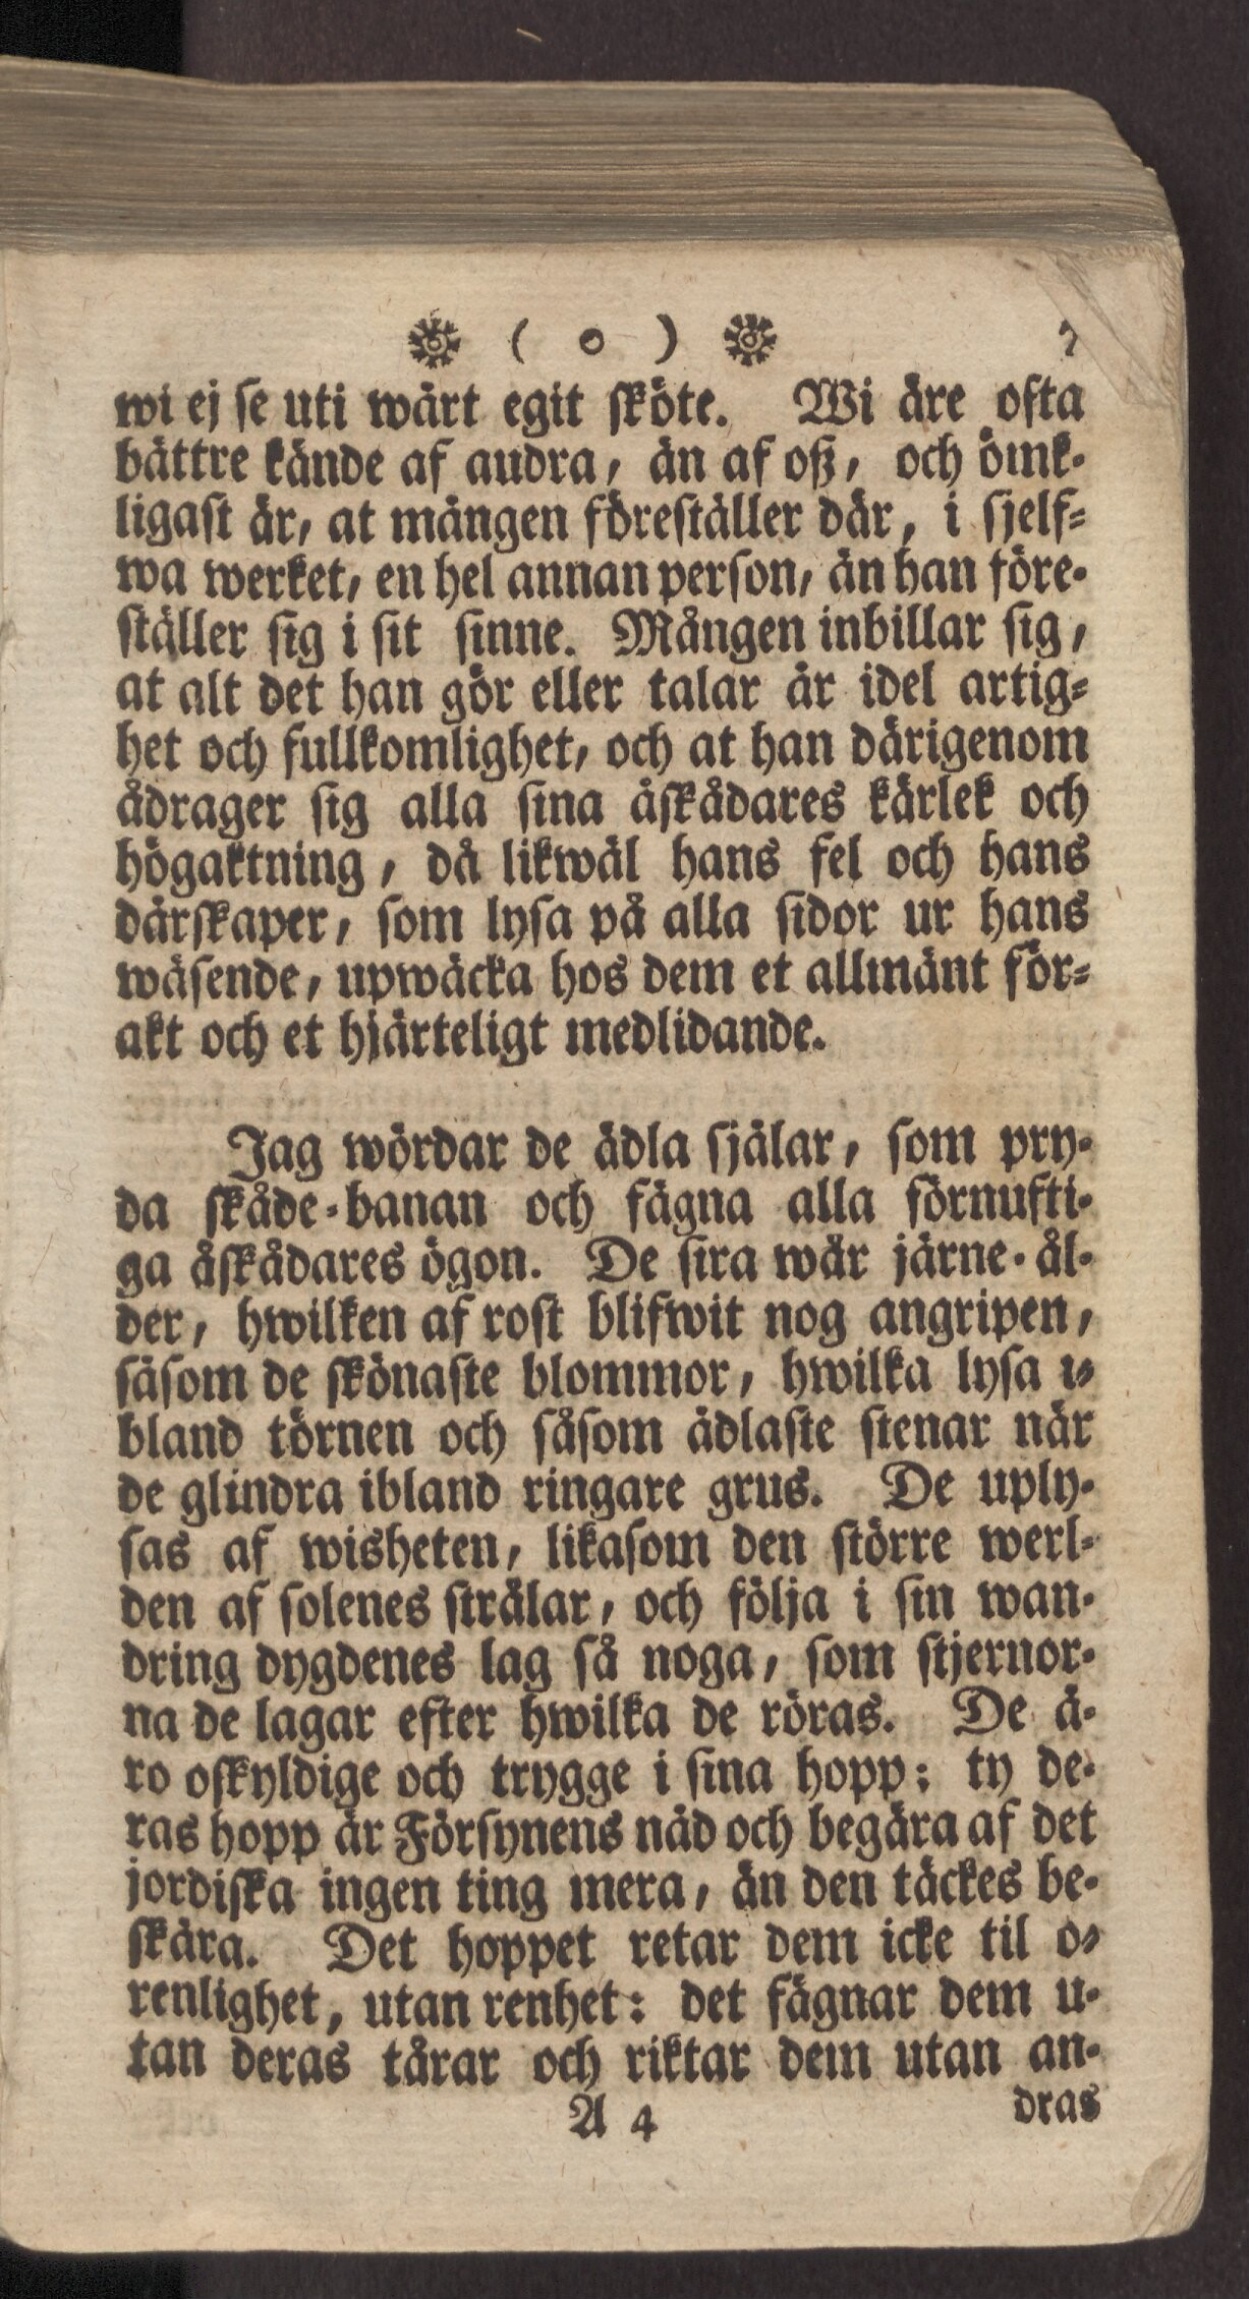 ( o ) 7
wi ej se uti wårt egit sköte. Wi äre ofta
bättre kände af audra, än af oß, och ömk-
ligast är, at mången föreställer där, i sjelf-
wa werket, en hel annan person, än han före-
ställer sig i sit sinne. Mången inbillar sig,
at alt det han gör eller talar är idel artig-
het och fullkomlighet, och at han därigenom
ådrager sig alla sina åskådares kärlek och
högaktning, då likwäl hans fel och hans
dårskaper, som lysa på alla sidor ur hans
wäsende, upwäcka hos dem et allmänt för-
akt och et hjärteligt medlidande.
Jag wördar de ädla själar, som pry-
da skåde-banan och fägna alla förnufti-
ga åskådares ögon. De sira wår järne-ål-
der, hwilken af rost blifwit nog angripen,
såsom de skönaste blommor, hwilka lysa i-
bland törnen och såsom ädlaste stenar när
de glindra ibland ringare grus. De uply-
sas af wisheten, likasom den större werl-
den af solenes strålar, och följa i sin wan-
dring dygdenes lag så noga, som stjernor-
na de lagar efter hwilka de röras. De ä-
ro oskyldige och trygge i sina hopp: ty de-
ras hopp är Försynens nåd och begära af det
jordiska ingen ting mera, än den täckes be-
skära. Det hoppet retar dem icke til o-
renlighet, utan renhet: det fägnar dem u-
tan deras tårar och riktar dem utan an-
A 4 dras